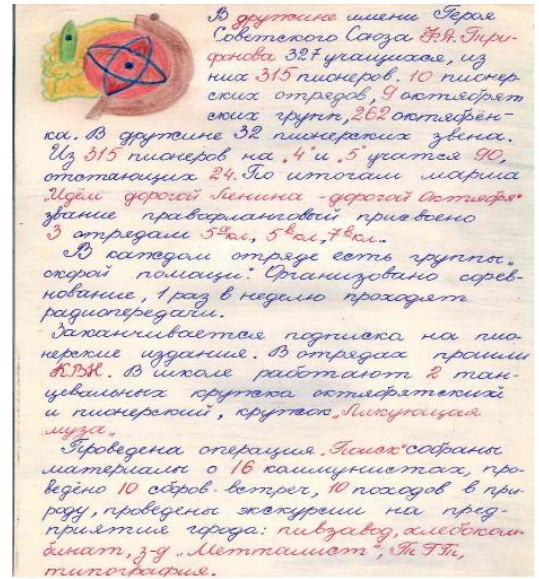 В дружине имени Героя
Советского Союза Ф.А. Трифонова
327 учащихся, из
них 315 пионеров. 10 пионер-
ских отрядов, 9 октябрят
ских групп, 262 октябрён-
ка. В дружине 32 пионерских звена.
Из 315 пионеров на „4" и „5" учатся 90,
отстающих 24. По итогам марша
„Идём дорогой Ленина - дорогой Октября"
звание правофланговый присвоено
3 отрядам 5ᵃкл, 5ᵇкл, 7ᵇкл.
В каждом отряде есть группы „
скорой помощи". Организовано сорев-
нование, 1 раз в неделю проходят
радиопередачи.
Заканчивается подписка на пио-
нерские издания. В отрядах прошли
КВН. В школе работают 2 тан-
цевальных кружка октябрятский
и пионерский, кружок „Ликующая
муза„
Проведена операция „Поиск" собраны
материалы о 16 коммунистах, про-
ведено 10 сборов-встреч, 10 походов в при-
роду, проведены экскурсии на пред-
приятия города: пивзавод, хлебоком-
бинат, з-д „Метталист", ПтГПт,
типография.